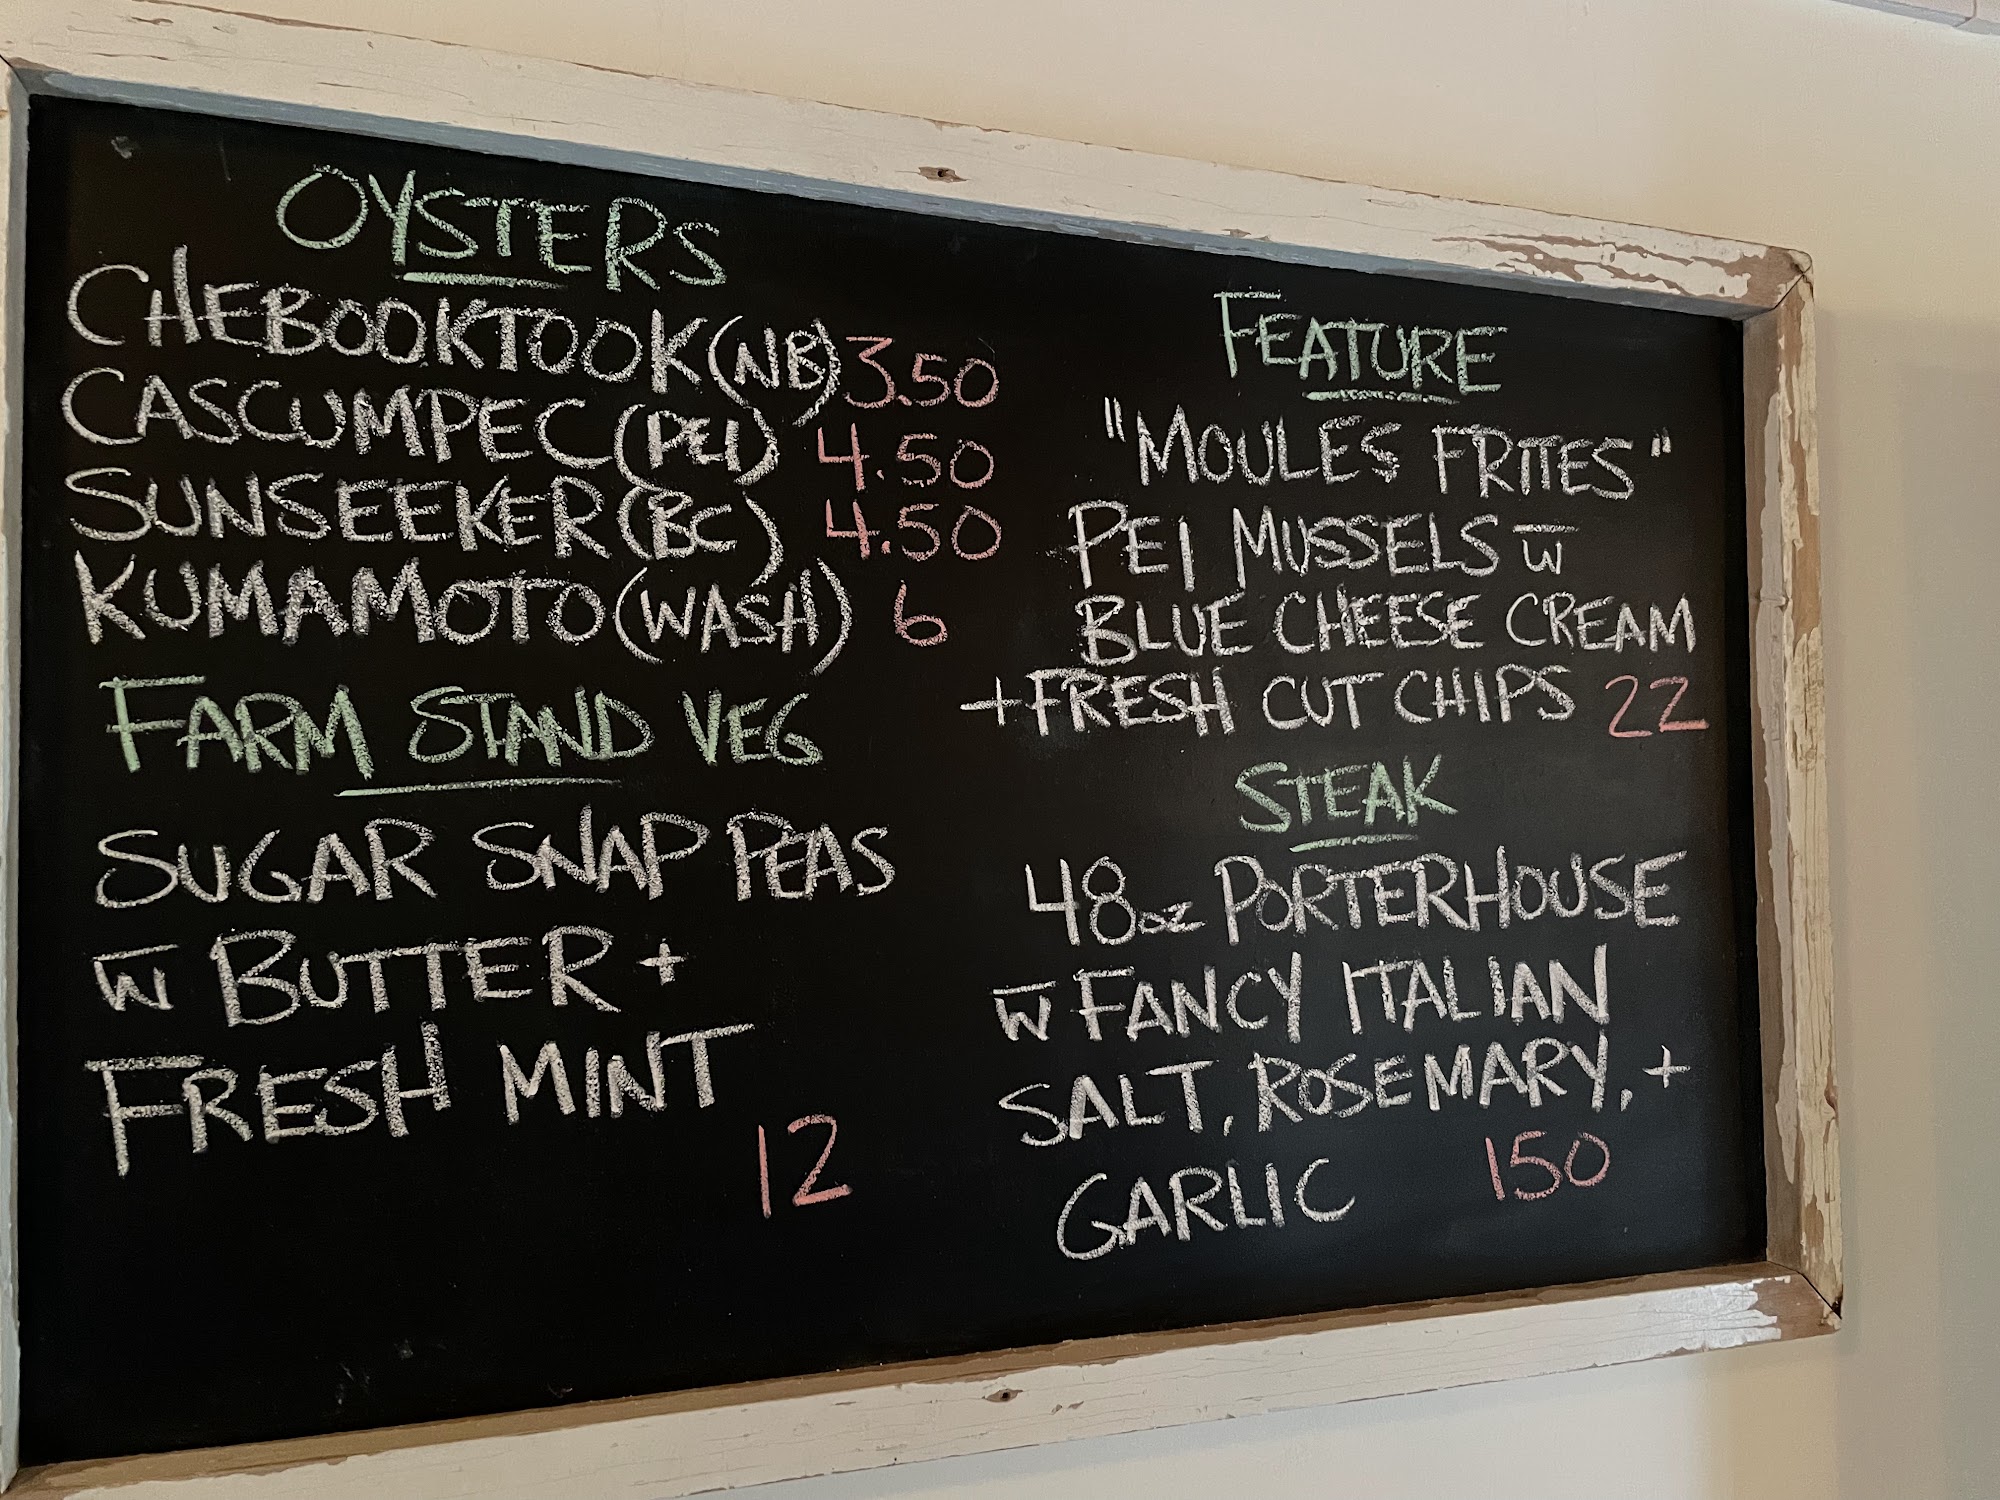 OYSTERS
CHEBOOKTOOK (NB) 3.50
CASCUMPEC (PEI) 4.50
SUNSEEKER (BC) 4.50
KUMAMOTO (WASH) 6
FARM STAND VEG
SUGAR SNAP PEAS
w̅ BUTTER +
FRESH MINT
12
FEATURE
"MOULES FRITES"
PEI MUSSELS w̅
BLUE CHEESE CREAM
+ FRESH CUT CHIPS 22
STEAK
48oz PORTERHOUSE
w̅ FANCY ITALIAN
SALT, ROSEMARY, +
GARLIC 150